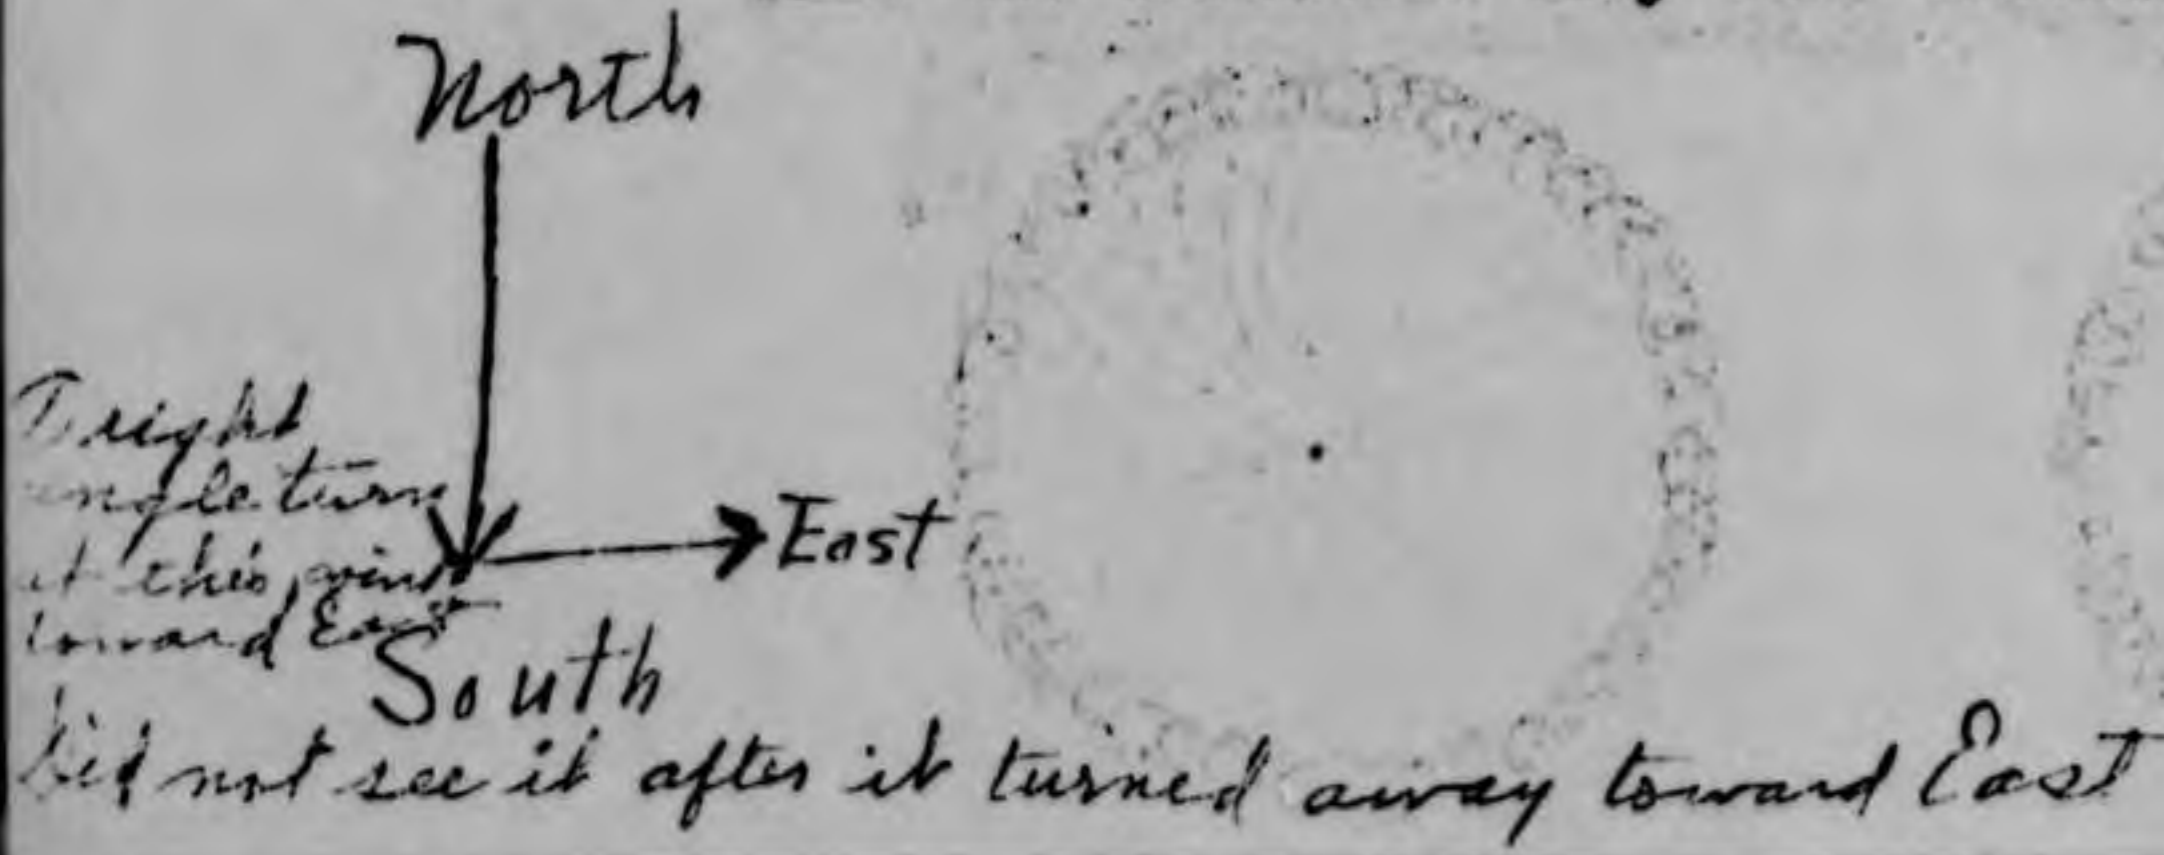 North
right
angle turn
at this point
toward East
East
South
Did not see it after it turned away toward East